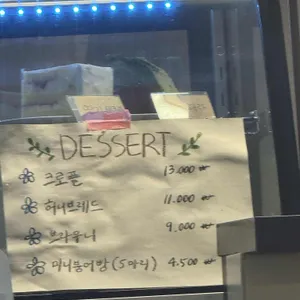 DESSERT
크로플 13.000 ₩
허니브레드 11.000 ₩
브라우니 9.000 ₩
미니붕어빵 (5마리) 4.500 ₩